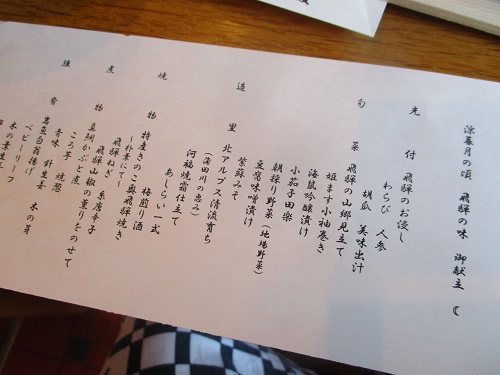 涼暮月の頃 飛騨の味 御献立
先付 飛騨のお浸し
わらび 人参
胡瓜 美味出汁
旬菜 飛騨の山郷見立て
姫ます小袖巻き
海鼠吟醸漬け
小茄子田楽
朝採り野菜(地場野菜)
豆腐味噌漬け
紫蘇みそ
造里 北アルプス清流育ち
(蒲田川の恵み)
河福焼霜仕立て
あしらい一式
梅煎り酒
焼物 特産きのこ奥飛騨焼き
〜朴葉にて〜
飛騨ねぎ
糸唐辛子
煮物 飛騨山椒の薫りをのせて
真鯛かぶと煮
ころ芋 焼葱
香味 針生姜 木の芽
強肴
ベビーリーフ